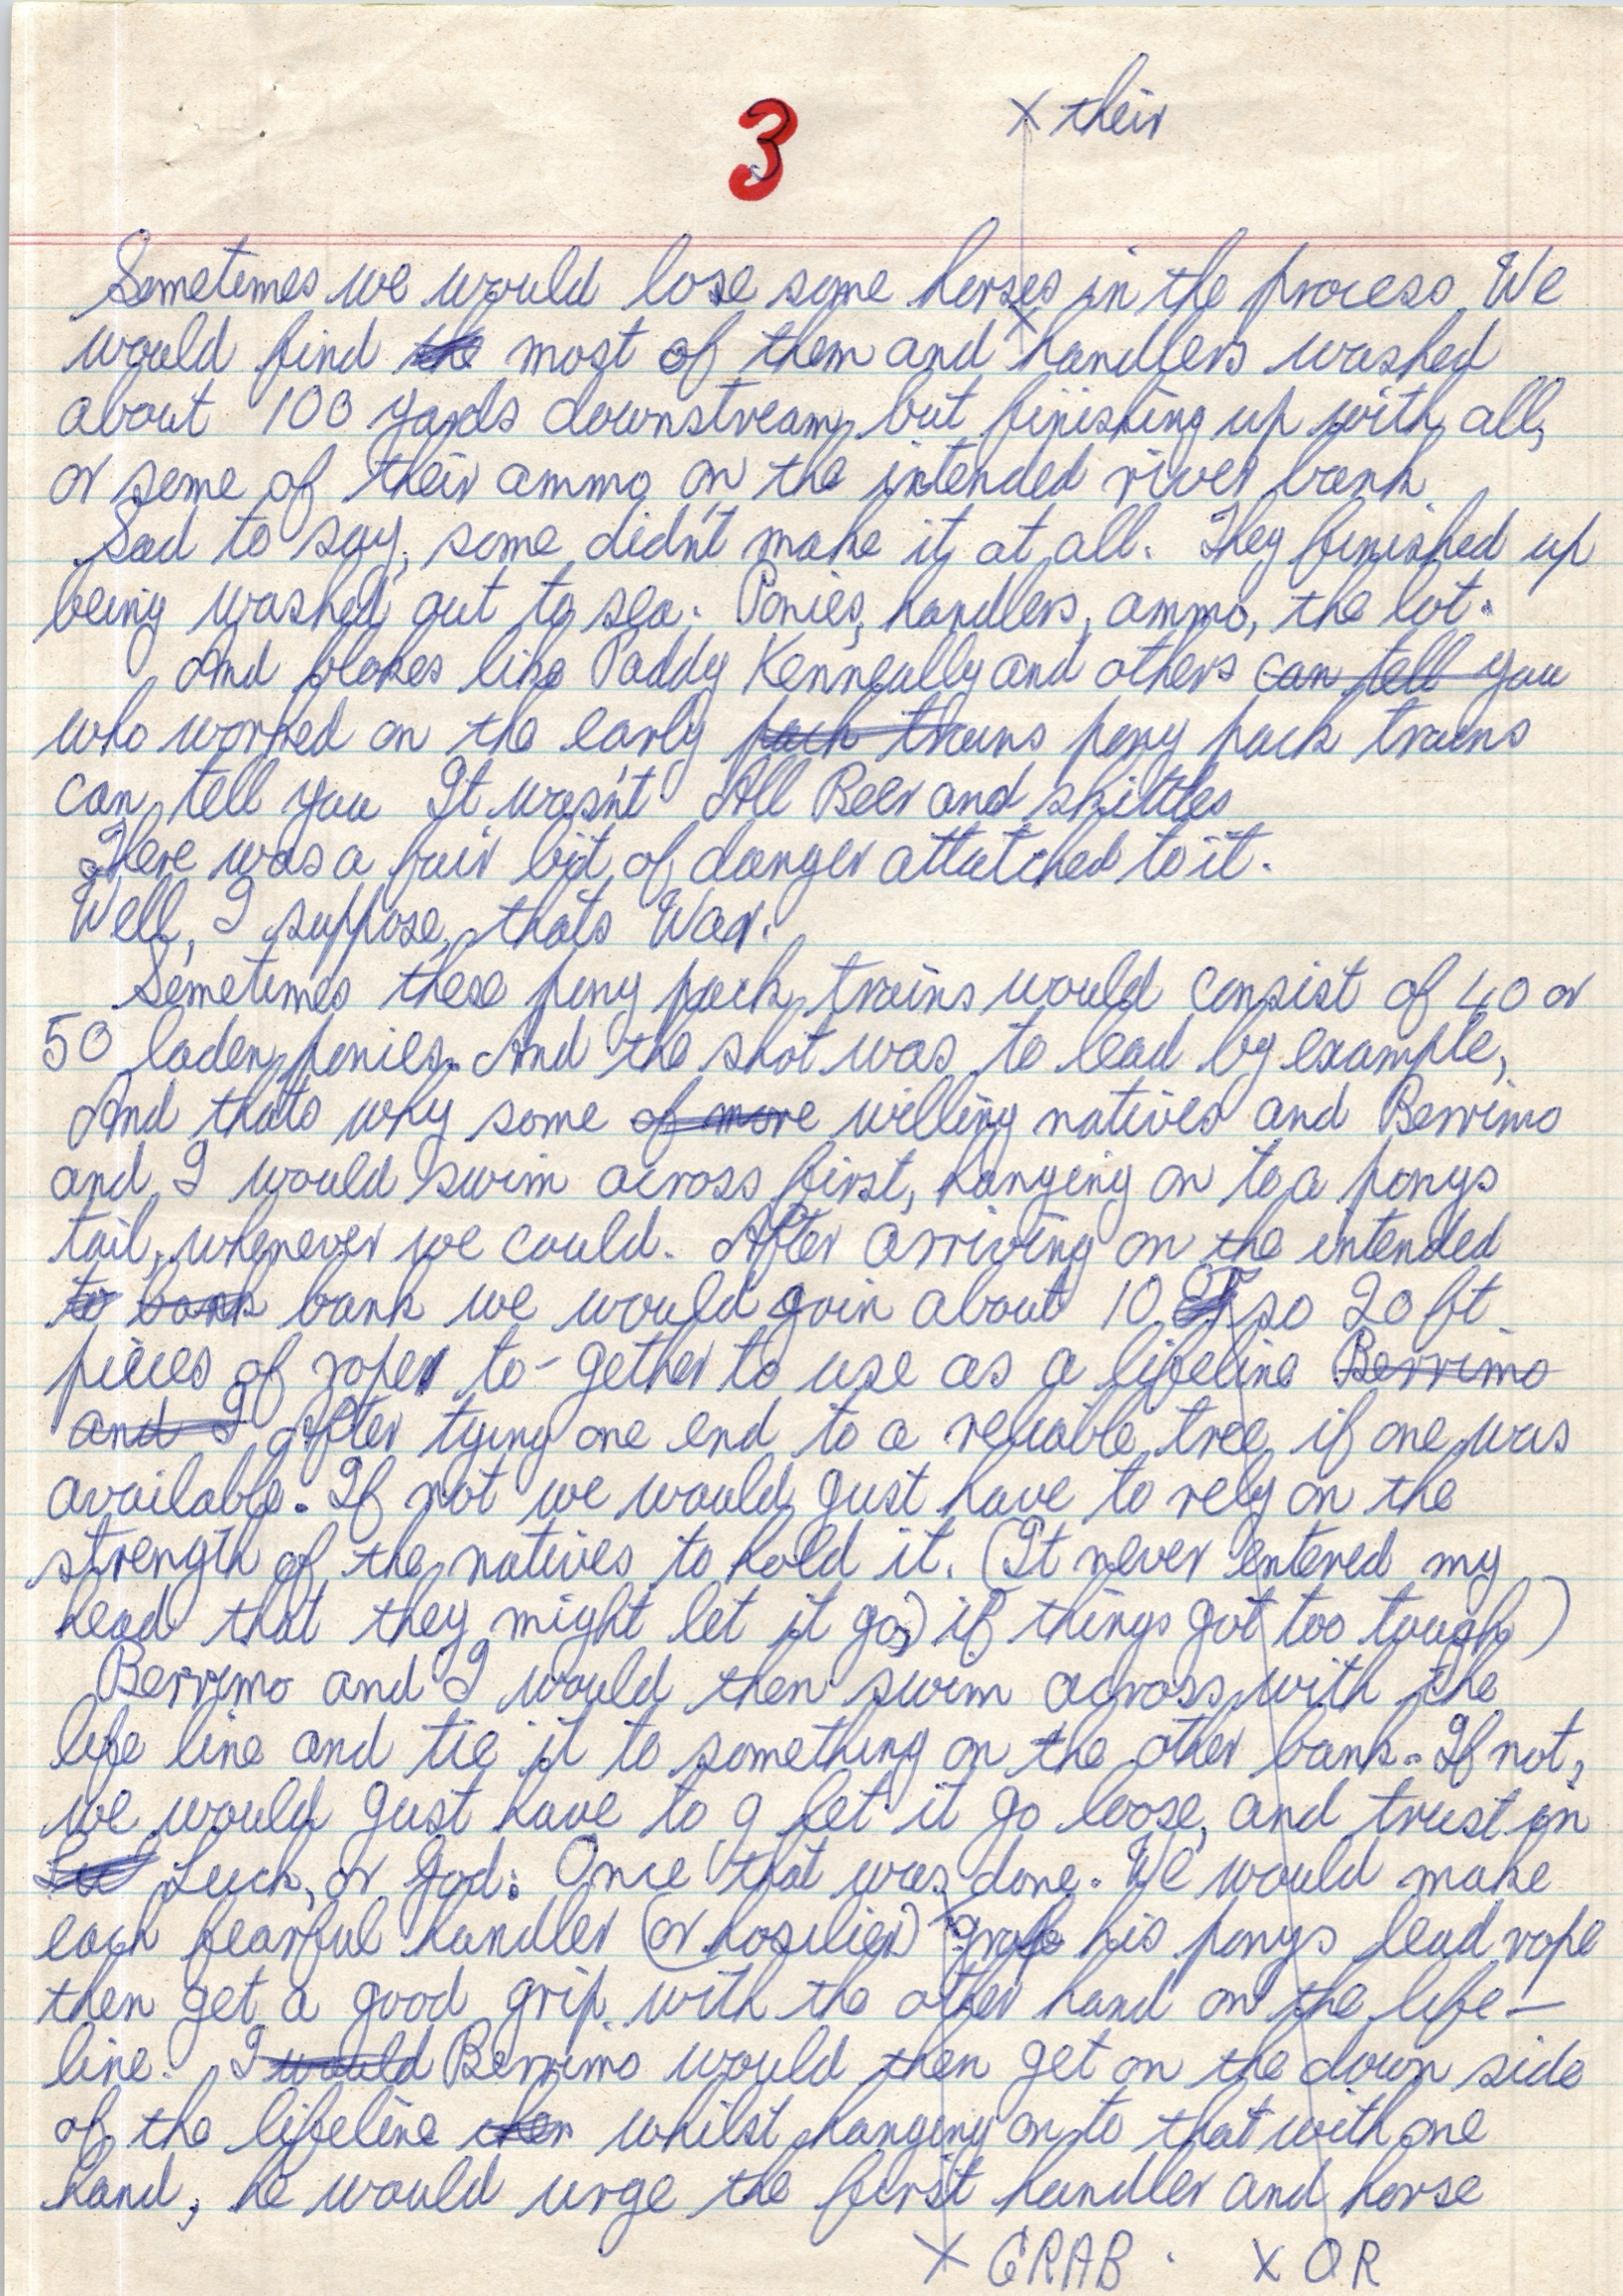 3
x their
Sometimes we would lose some horses in the process. We
would find the most of them and handlers washed
about 100 yards downstream, but finishing up with all,
or some of their ammo on the intended river bank
Sad to say, some didn't make it at all. They finished up
being washed out to sea. Ponies, handlers, ammo, the lot.
And blokes like Paddy Kenneally and others can tell you
who worked on the early pack trains pony pack trains
can tell you It wasn't All Beer and skittles
There was a fair bit of danger attatched to it.
Well, I suppose, thats War.
Sometimes these pony pack trains would consist of 40 or
50 laden ponies. And the shot was to lead by example,
And thats why some of more willing natives and Berrimo
and I would swim across first, hanging on to a ponys
tail, whenever we could. After arriving on the intended
to bank bank we would goin about 10 so 20 ft
pieces of roper to-gether to use as a lifeline Berrimo
and I After tying one end to a reliable tree, if one was
available. If not we would gust have to rely on the
strength of the natives to hold it. (It never entered my
head that they might let it go,) if things got too tough)
Berrimo and I would then swim across with the
life line and tie it to something on the other bank. If not,
we would gust have to g let it go loose, and trust in
Lu Luck, or God. Once that was done. We would make
each fearful handler (or hosilier) x grab his ponys lead rope
then get a good grip with the other hand on the life-
line. I would Berrimo would then get on the down side
of the lifeline then whilst hanging on to that with one
hand, he would urge the first handler and horse
x GRAB. x OR